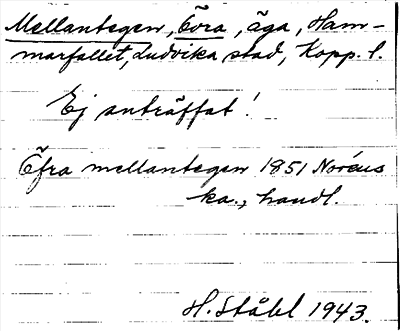 Mellantegen, Ööra, äga, Ham-
marfallet, Ludvika stad, Kopp. l.
Ej anträffat!
Öfra mellantegen 1851 Noréus
ka., handl.
H. Ståhl 1943.